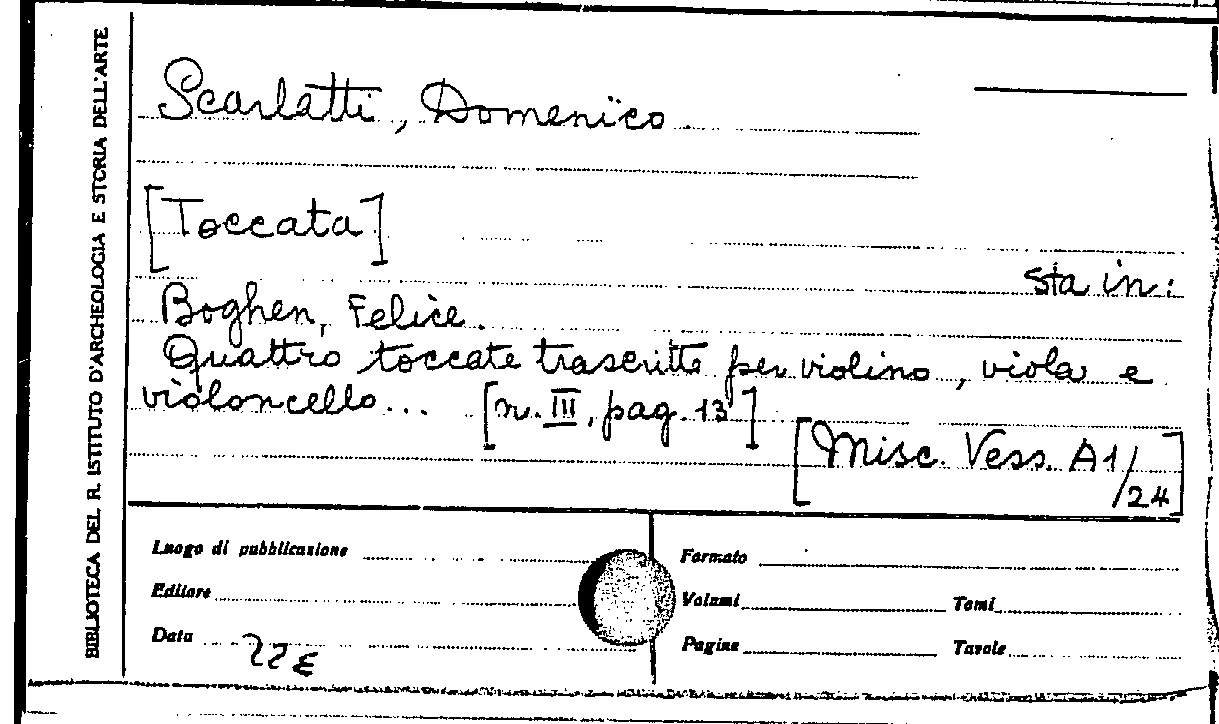 BIBLIOTECA DEL R. ISTITUTO D'ARCHEOLOGIA E STORIA DELL'ARTE
Scarlatti, Domenico
[Toccata]
sta in:
Boghen, Felice.
Quattro toccate trascritte per violino, viola e
violoncello... [n. III, pag. 13]
[Misc. Vess. A1/24]
Luogo di pubblicazione
Editore
Data
Formato
Volumi Tomi
Pagine Tavole